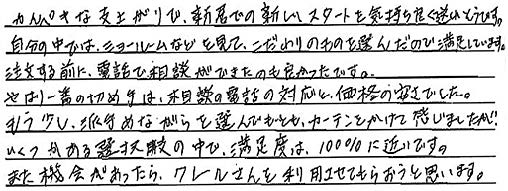 かんぺきな支上がりで、新居での新しいスタートを気持ち良く迷いそうです。
自分の中では、ショールームなどを見て、こだわりのものを選んだので満足しています。
注文する前に、電話で相談ができたのも良かったです。
やはり一番の切め手は、相談の電話の対応と、価格の安さでした。
もう少し、派手めながらを選んでもと、カーテンをかけて感じましたが!
いくつかある選択肢の中で、満足度は、1000%に近いです。
また機会があったら、クレールさんを利用させてもらおうと思います。